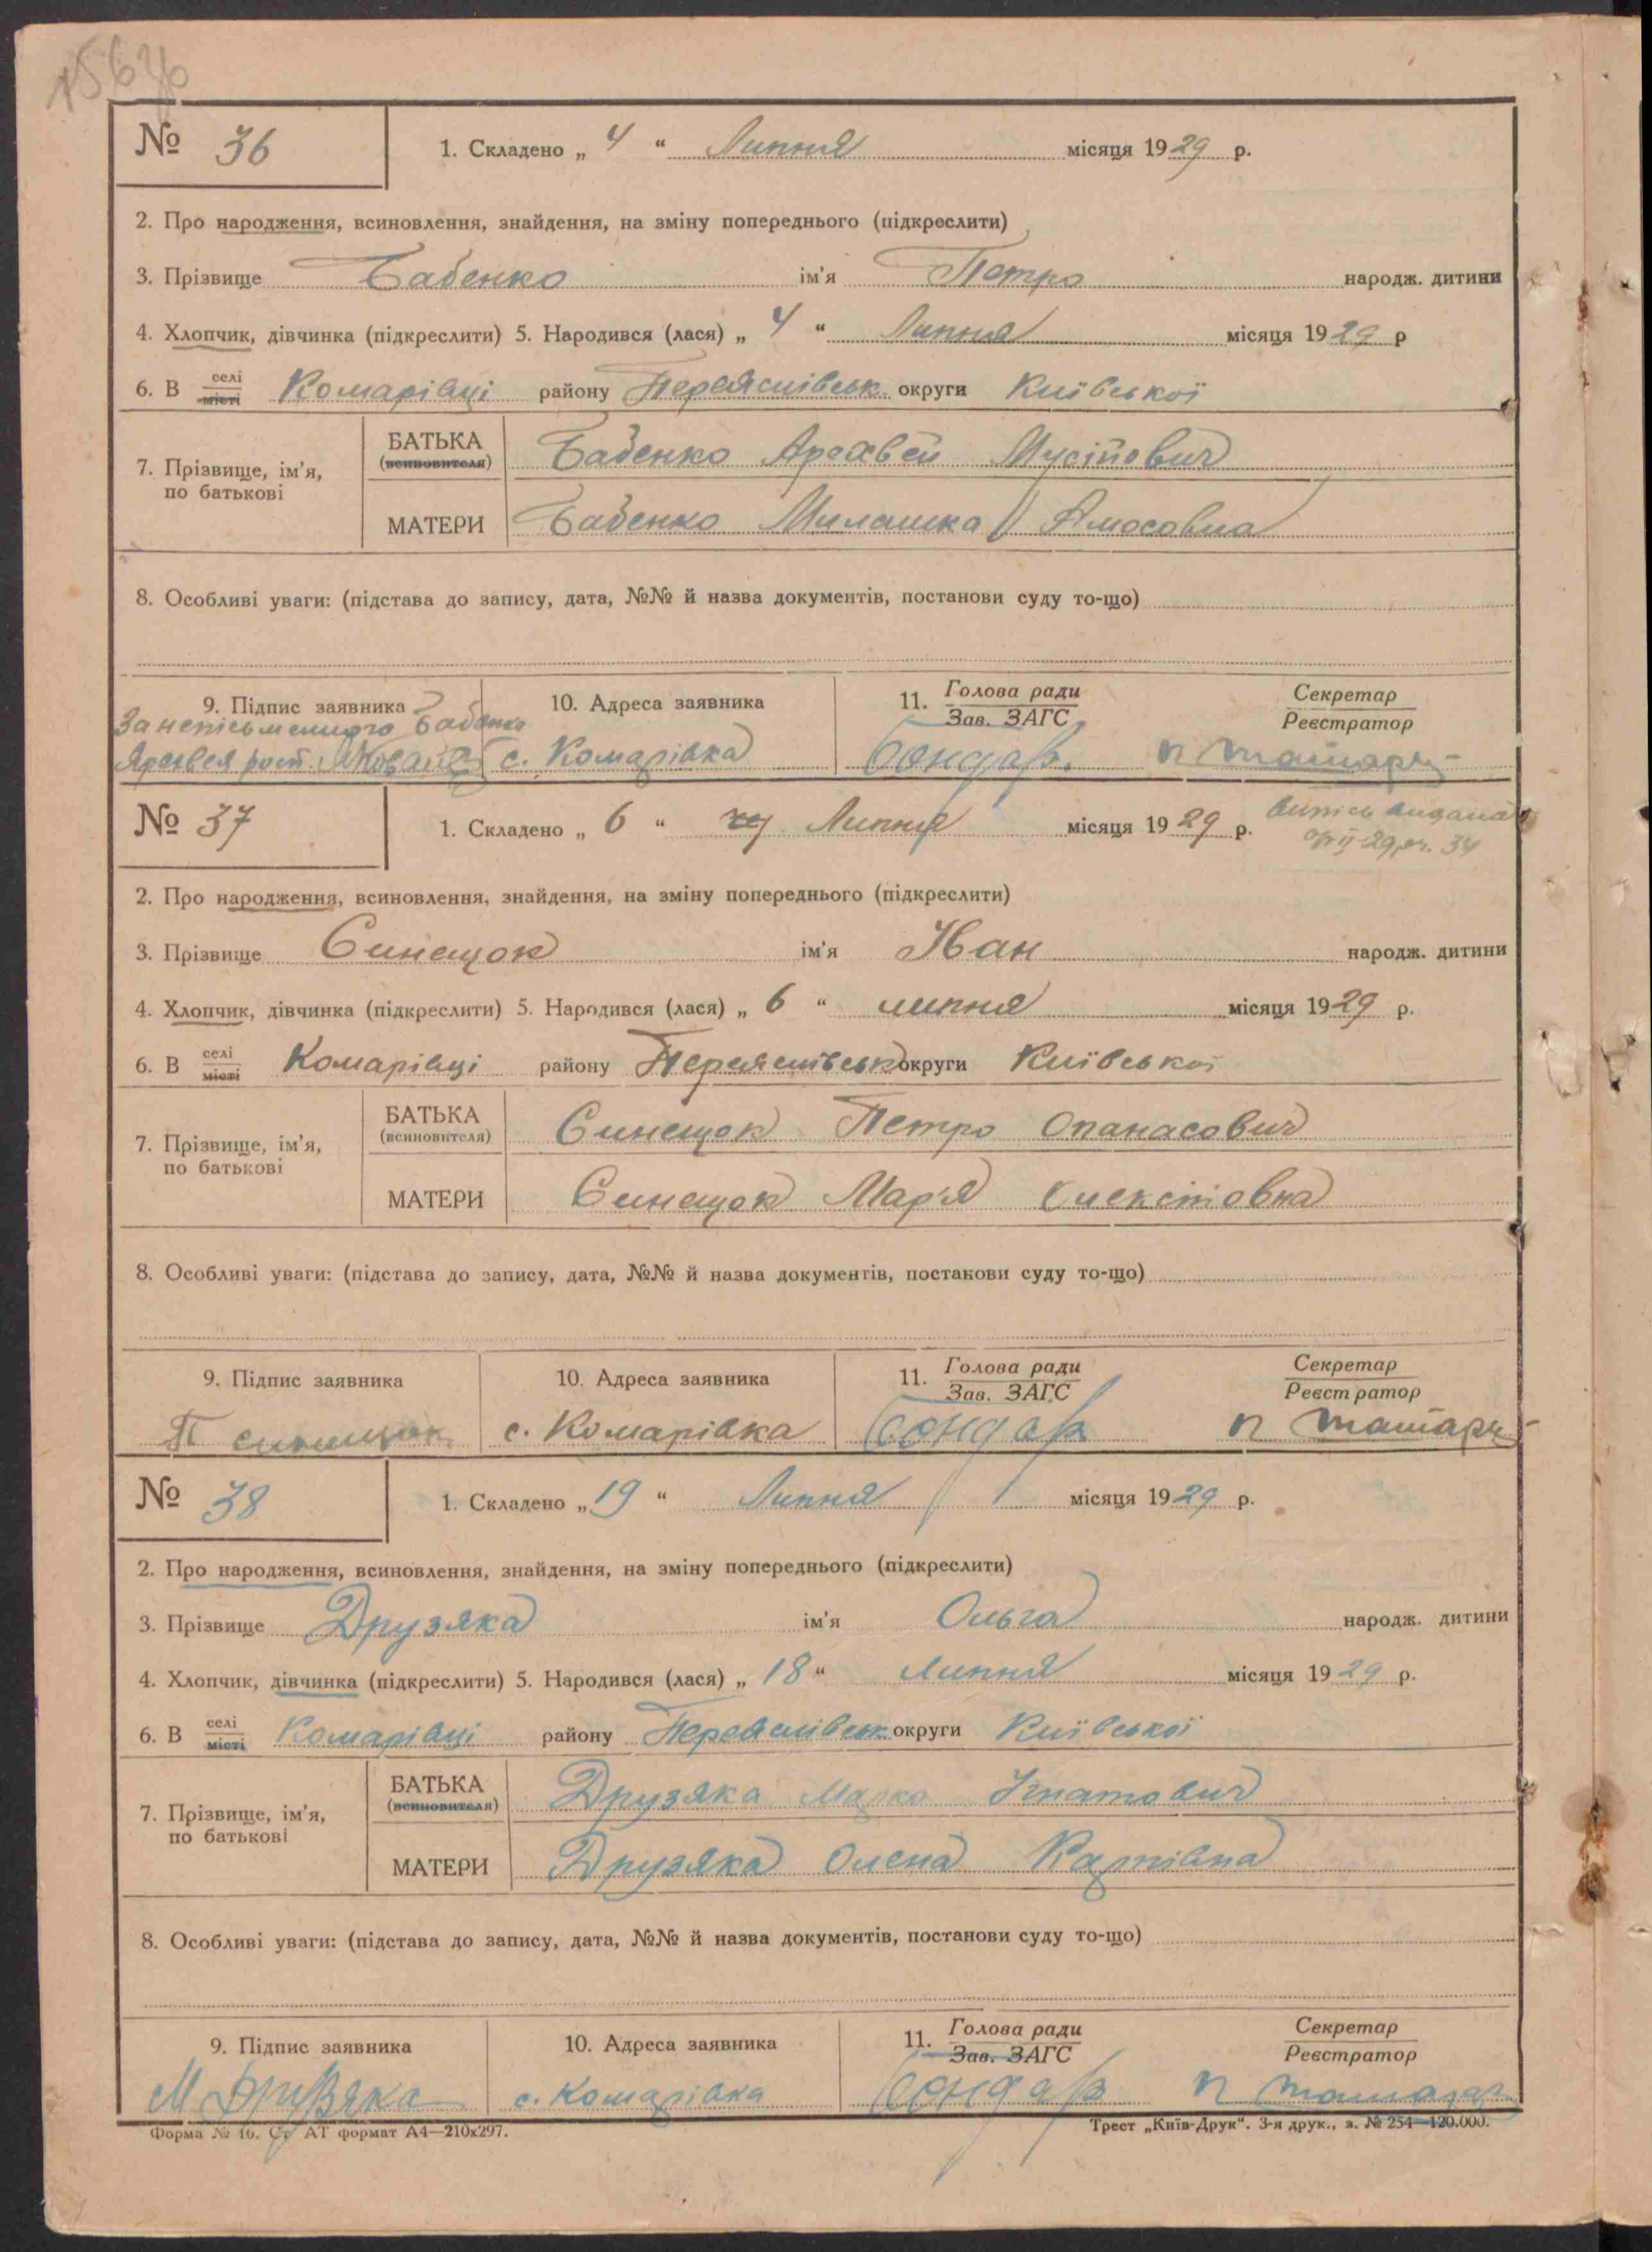 № 36
1. Складено „ 4 “ Липня місяця 1929 р.
2. Про народження, всиновлення, знайдення, на зміну попереднього (підкреслити)
3. Прізвище Бабенко ім'я Петро народж. дитини
4. Хлопчик, дівчинка (підкреслити) 5. Народився (лася) „ 4 “ Липня місяця 1929 р
6. В селі місті Комарівці району Переяслівськ. округи Київської
7. Прізвище, ім'я, по батькові
БАТЬКА (всиновителя) Бабенко Мусійович
МАТЕРИ Бабенко Милашка Амосовна
8. Особливі уваги: (підстава до запису, дата, №№ й назва документів, постанови суду то-що)
9. Підпис заявника 10. Адреса заявника 11. Голова ради Зав. ЗАГС Секретар Реєстратор
За неписьменного Бабенко
с. Комарівка Бондар
№ 37
1. Складено „ 6 “ Липня місяця 1929 р. випись видана
2. Про народження, всиновлення, знайдення, на зміну попереднього (підкреслити)
3. Прізвище Синещок ім'я Іван народж. дитини
4. Хлопчик, дівчинка (підкреслити) 5. Народився (лася) „ 6 “ липня місяця 1929 р.
6. В селі місті Комарівці району Переяслівськ округи Київської
7. Прізвище, ім'я, по батькові
БАТЬКА (всиновителя) Синещок Петро Опанасович
МАТЕРИ Синещок Мар'я
8. Особливі уваги: (підстава до запису, дата, №№ й назва документів, постанови суду то-що)
9. Підпис заявника 10. Адреса заявника 11. Голова ради Зав. ЗАГС Секретар Реєстратор
П с. Комарівка Бондар
№ 38
1. Складено „ 19 “ Липня місяця 1929 р.
2. Про народження, всиновлення, знайдення, на зміну попереднього (підкреслити)
3. Прізвище Друзяка ім'я Ольга народж. дитини
4. Хлопчик, дівчинка (підкреслити) 5. Народився (лася) „ 18 “ Липня місяця 1929 р.
6. В селі місті Комарівці району Переяслівськ округи Київської
7. Прізвище, ім'я, по батькові
БАТЬКА (всиновителя) Друзяка Марко Ігнатович
МАТЕРИ Друзяка Олена Карпівна
8. Особливі уваги: (підстава до запису, дата, №№ й назва документів, постанови суду то-що)
9. Підпис заявника 10. Адреса заявника 11. Голова ради Зав. ЗАГС Секретар Реєстратор
М Друзяка с. Комарівка Бондар
Форма № 16. Ст АТ формат А4—210х297. Трест „Київ-Друк“. 3-я друк., з. № 254—120.000.